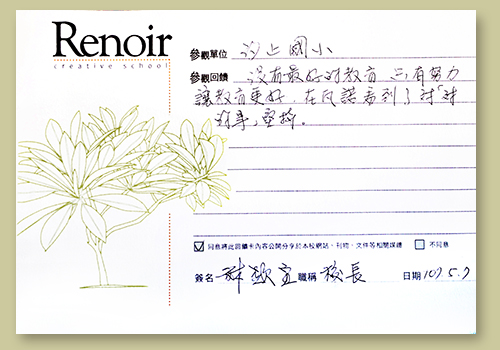 Renoir
creative school
參觀單位 汐止國小
參觀回饋 沒有最好的教育 只有努力
讓教育更好。在凡諾看到了對「對
的事」堅持。
同意將此回饋卡內容公開分享於本校網站、刊物、文件等相關媒體 不同意
簽名 職稱 校長 日期 107.5.7